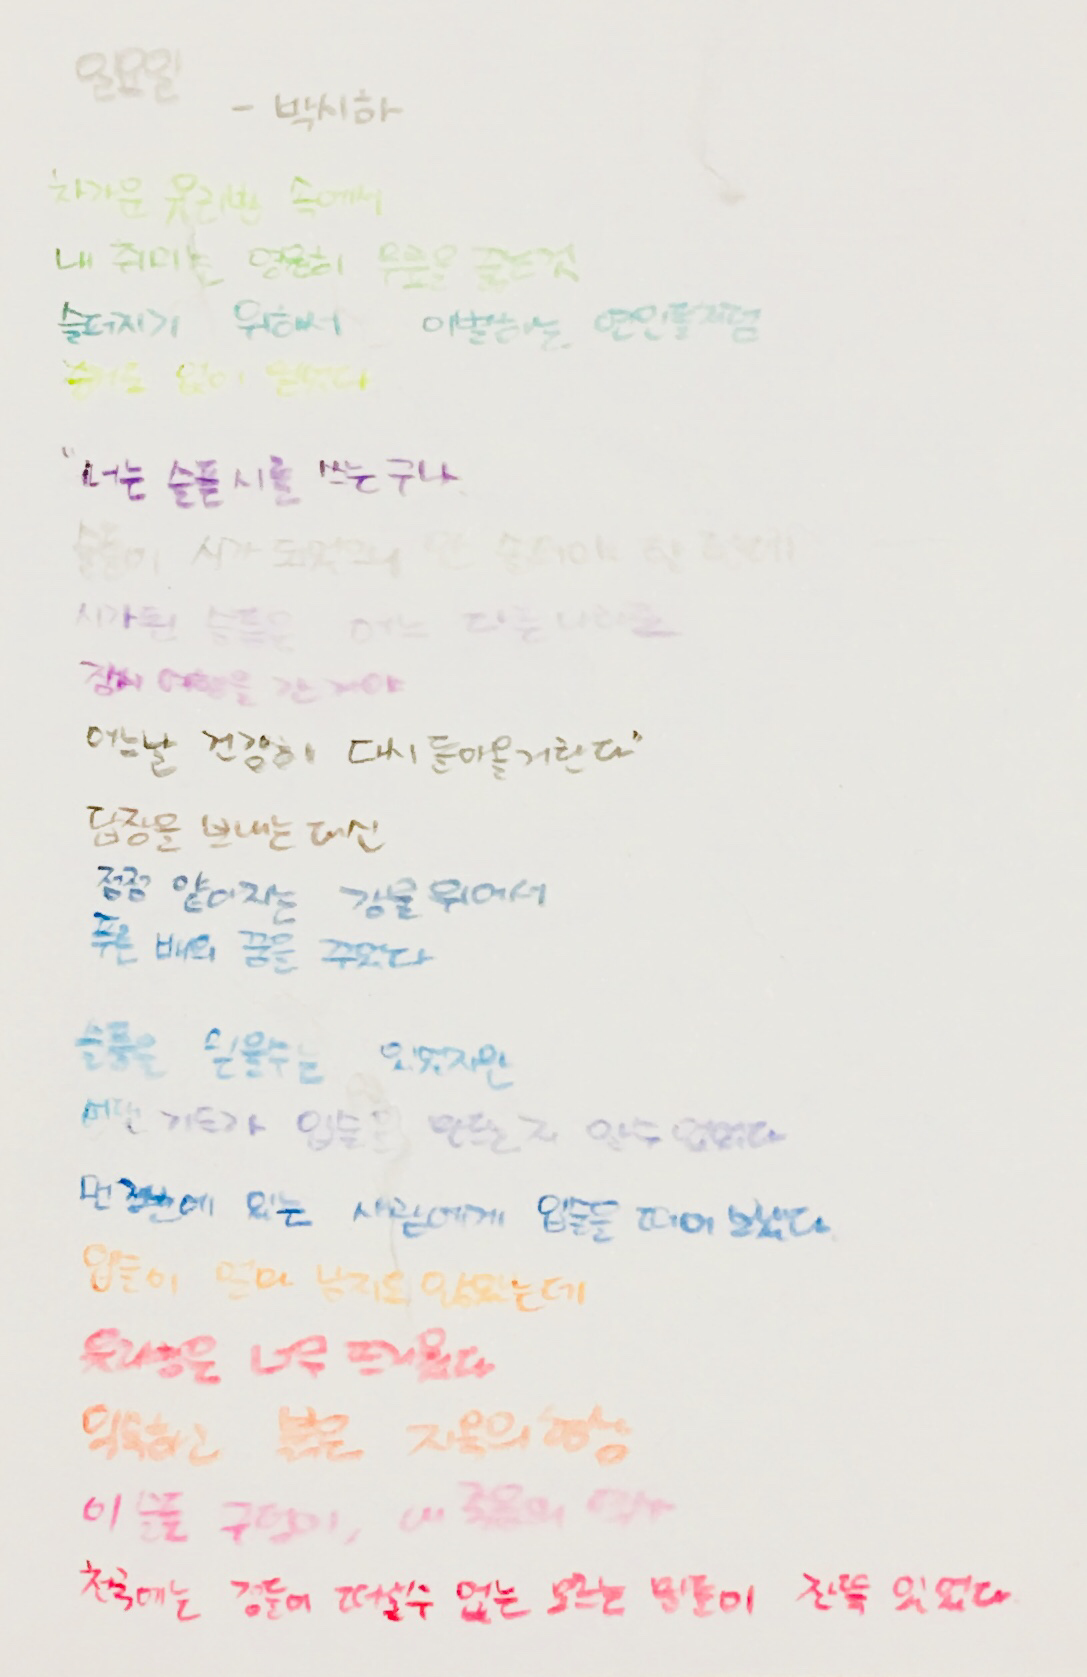 일요일
- 박시하
차가운 유리병 속에서
내 취미는 영원히 무릎을 꿇는 것
슬퍼지기 위해서 이별하는 연인들처럼
증거도 없이 믿었다
"너는 슬픈 시를 쓰는구나
슬픔이 시가 되었으니 안 슬퍼야 할 텐데
시가 된 슬픔은 어느 다른 나라로
잠시 여행을 간 거야
어느날 건강히 다시 돌아올거란다"
답장을 보내는 대신
점점 얕아지는 강물 위에서
푸른 배의 꿈을 꾸었다
슬픔은 실을수는 있었지만
어떤 기도가 입술을 만드는지 알 수 없었다
먼 절벽에 있는 사람에게 입술을 떼어 보냈다
입술이 얼마 남지도 않았는데
유리병은 너무 뜨거웠다
익숙하고 붉은 지옥의 형상
이 슬픔 구덩이, 내 죽음의
천국에는 경들이 떠날수 없는 모르는 말들이 잔뜩 있었다